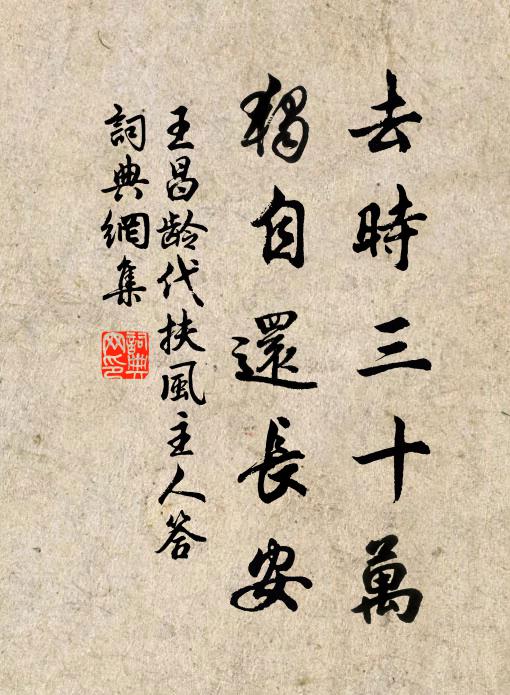 去時三十萬
獨自還長安
王昌龄代扶風主人答
詞典網集
詞典
网印